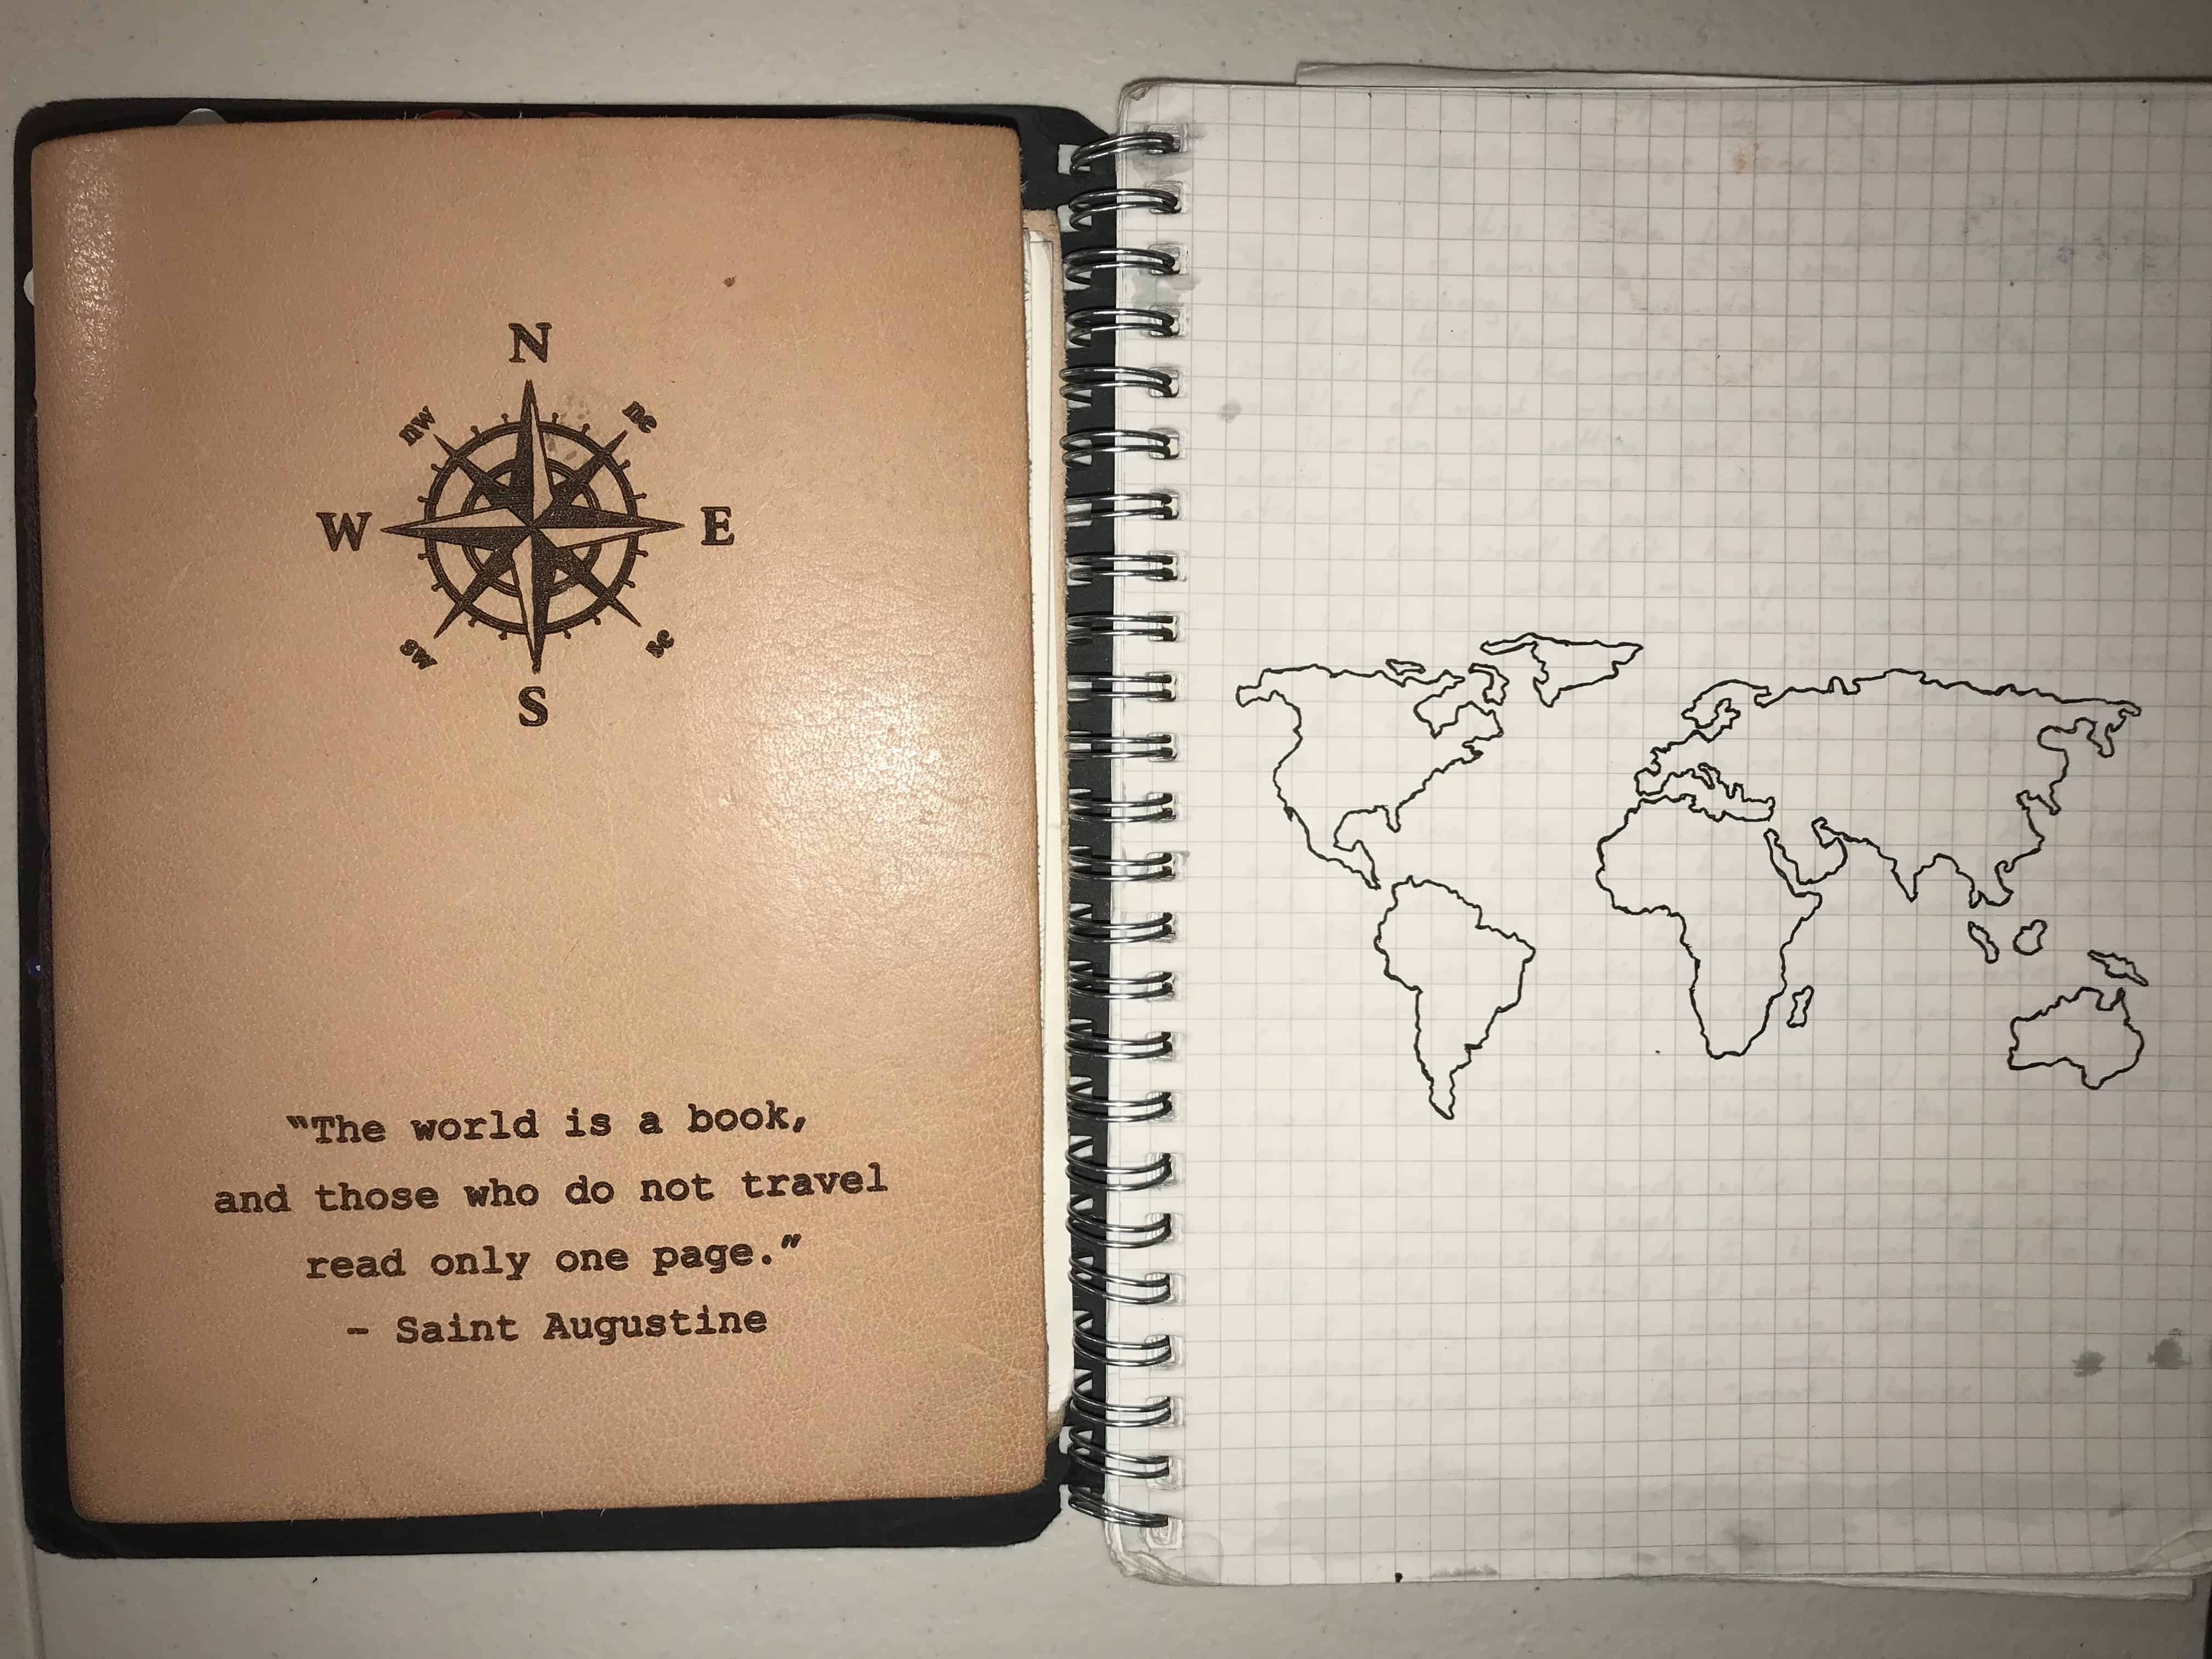 N
nw ne
W E
sw se
S
"The world is a book,
and those who do not travel
read only one page."
- Saint Augustine